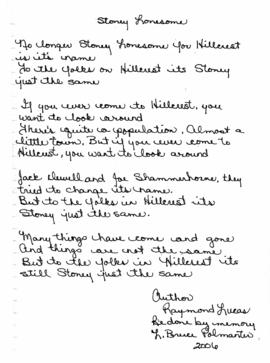 Stoney Lonesome
No longer Stoney Lonesome for Hillcrest
is it's name
To the folks on Hillcrest its Stoney
just the same
If you ever come to Hillcrest, you
want to look around
There's quite a population, Almost a
little town, But if you ever come to
Hillcrest, you want to look around
Jack Elwell and Joe Shammerhorne, they
tried to change its name.
But to the folks in Hillcrest its
Stoney just the same.
Many things have come and gone
And things are not the same
But to the folks in Hillcrest its
still Stoney just the same
Author
Raymond Lucas
Re done by memory
L. Bruce Palmatier
2006